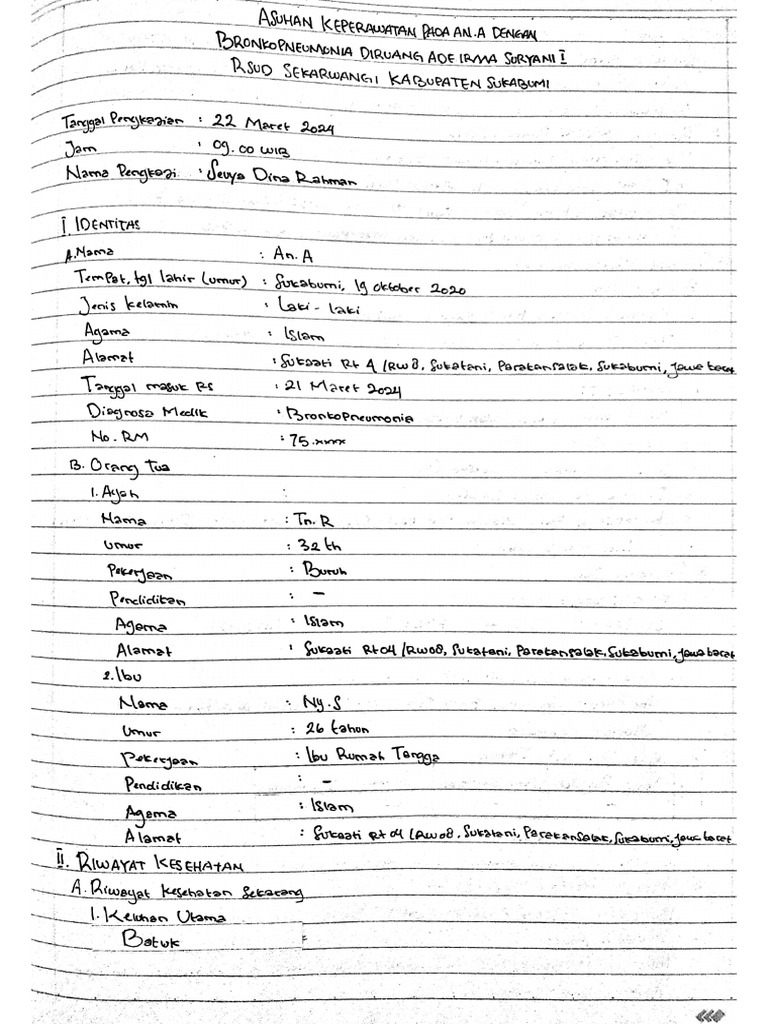 ASUHAN KEPERAWATAN PADA AN.A DENGAN
BRONKOPNEUMONIA DIRUANG ADE IRMA SURYANI I
RSUD SEKARWANGI KABUPATEN SUKABUMI
Tanggal Pengkajian : 22 Maret 2024
Jam : 09.00 WIB
Nama Pengkaji : Dina Rahman
I. IDENTITAS
A. Nama : An. A
Tempat, tgl lahir (umur) : Sukabumi, 19 Oktober 2020
Jenis Kelamin : Laki-laki
Agama : Islam
Alamat : Rt 4 /RW08, Sukatani, Parakansalak, Sukabumi, Jawa barat
Tanggal masuk RS : 21 Maret 2024
Diagnosa Medik : BronkoPneumonia
No. RM : 75.xxxx
B. Orang Tua
1. Ayah :
Nama : Tn. R
Umur : 32 th
Pekerjaan : Buruh
Pendidikan : -
Agama : Islam
Alamat : Rt 04 /RW08, Sukatani, Parakansalak, Sukabumi, Jawa barat
2. Ibu
Nama : Ny. S
Umur : 26 tahun
Pekerjaan : Ibu Rumah Tangga
Pendidikan : -
Agama : Islam
Alamat : Rt 04 /RW08, Sukatani, Parakansalak, Sukabumi, Jawa barat
II. RIWAYAT KESEHATAN
A. Riwayat Kesehatan Sekarang
1. Keluhan Utama
Batuk